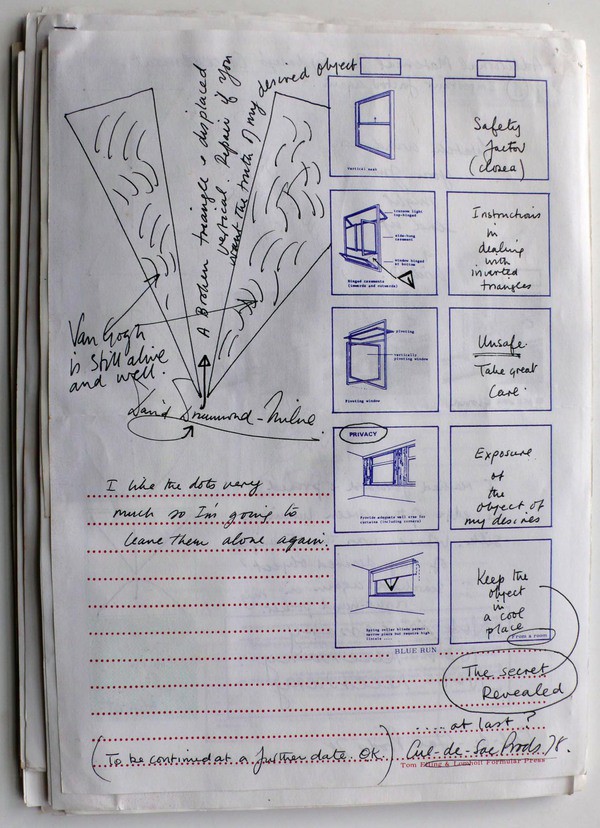 A Broken triangle & displaced
vertical. Repair if you
want the truth of my desired object
Van Gogh
is still alive
and well.
David Drummond-Milne.
I like the dots very
much so I'm going to
leave them alone again.
Vertical sash
Safety
factor
(closed)
transom light
top-hinged
side-hung
casement
window hinged
at bottom
Hinged casements
(inwards and outwards)
Instructions
in
dealing
with
inverted
triangles
pivoting
vertically
pivoting window
Pivoting window
Unsafe.
Take great
Care.
PRIVACY
Provide adequate wall area for
curtains (including corners)
Exposure
of
the
object of
my desires
Spring roller blinds permit
narrow piers but require high
lintels ....
Keep the
object
in
a cool
place
From a room
BLUE RUN
The secret
Revealed
.....at last?
(To be continued at a further date. OK)
Cul-de-Sac Prods 78.
Tom & Lomholt Formular Press